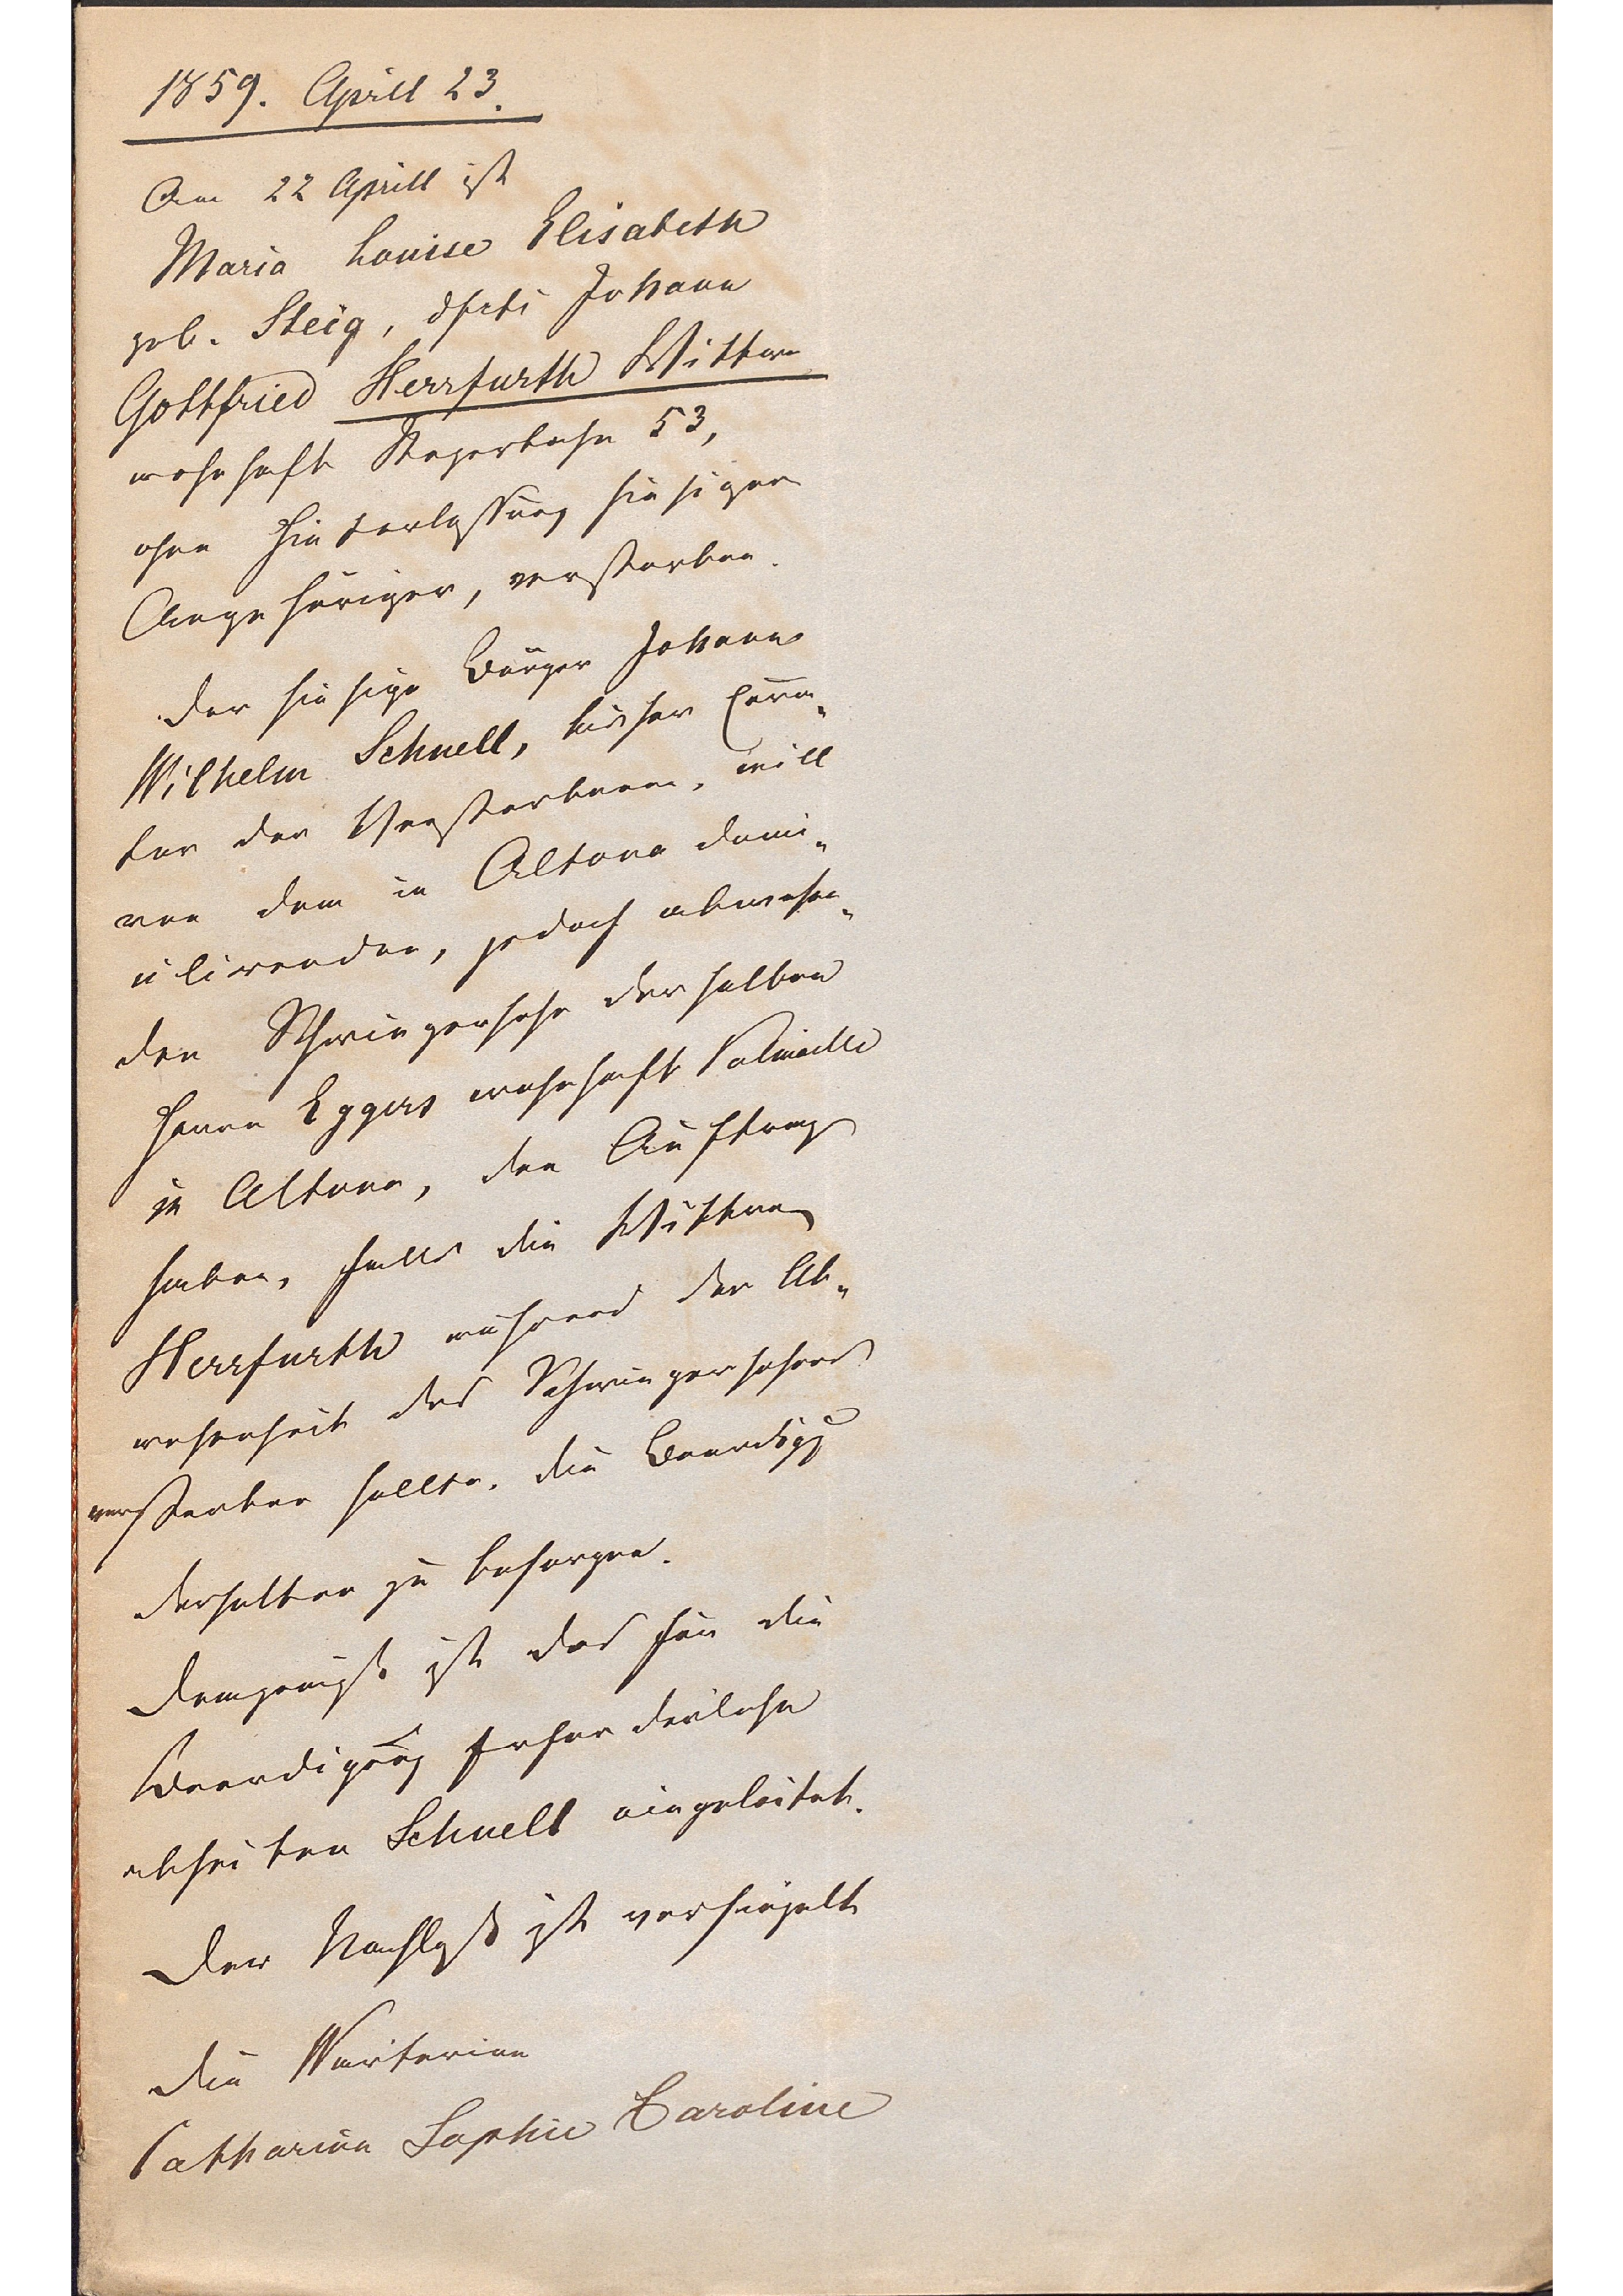 1859. Aprill 23.
Am 22 Aprill ist
Maria Louise Elisabeth
geb. Steig, Johann
Gottfried Herrfurth Wittwe
wohnhaft Reperbahn 53,
ohne Hinterlassung hiesiger
Angehöriger, verstorben.
Der hiesige Bürger Johann
Wilhelm Schnell, bisher Cura„
tor der Verstorbenen, will
von dem in Altona domi„
cilirenden, jedoch abwesen„
den Schwiegersohn derselben
Herrn Eggers wohnhaft Palmaille
in Altona, den Auftrag
haben, falls die Wittwe
Herrfurth während der Ab„
wesenheit des Schwiegersohnes
versterben sollte, die Beerdigg
derselben zu besorgen.
Demgemäß ist das für die
Beerdigung Erforderliche
abseiten Schnell eingeleitet.
Der Nachlaß ist versiegelt
Die Wärterinn
Catharina Sophie Caroline